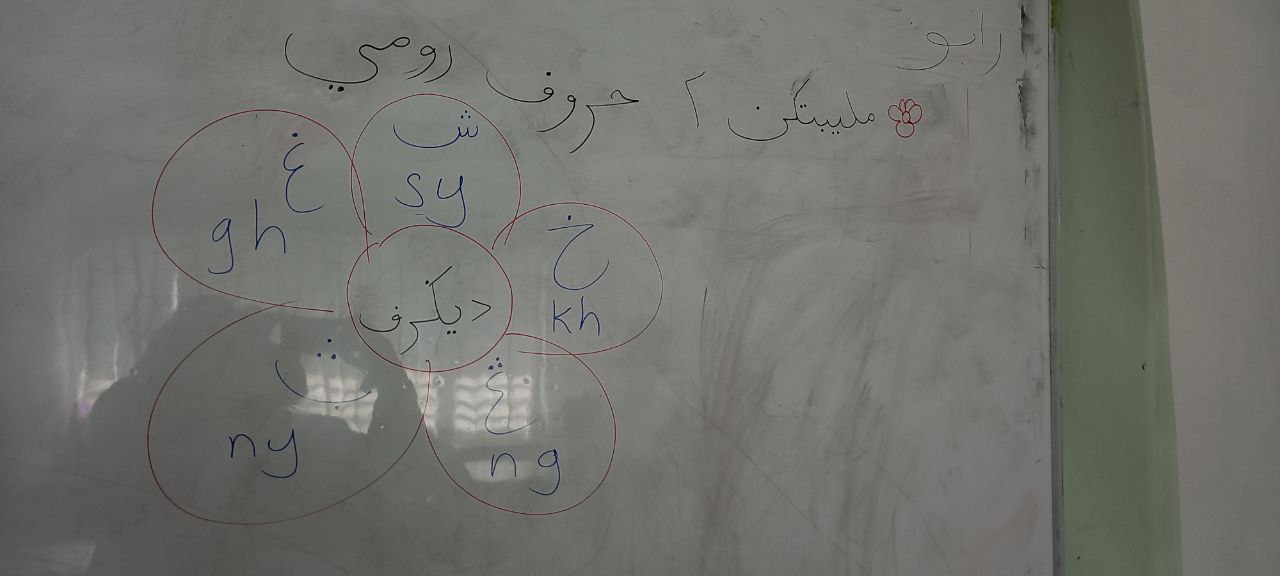 رابو
مليبتكن ٢ حروف رومي
ش
sy
غ
gh
خ
kh
ديݢرف
ڽ
ny
ڠ
ng